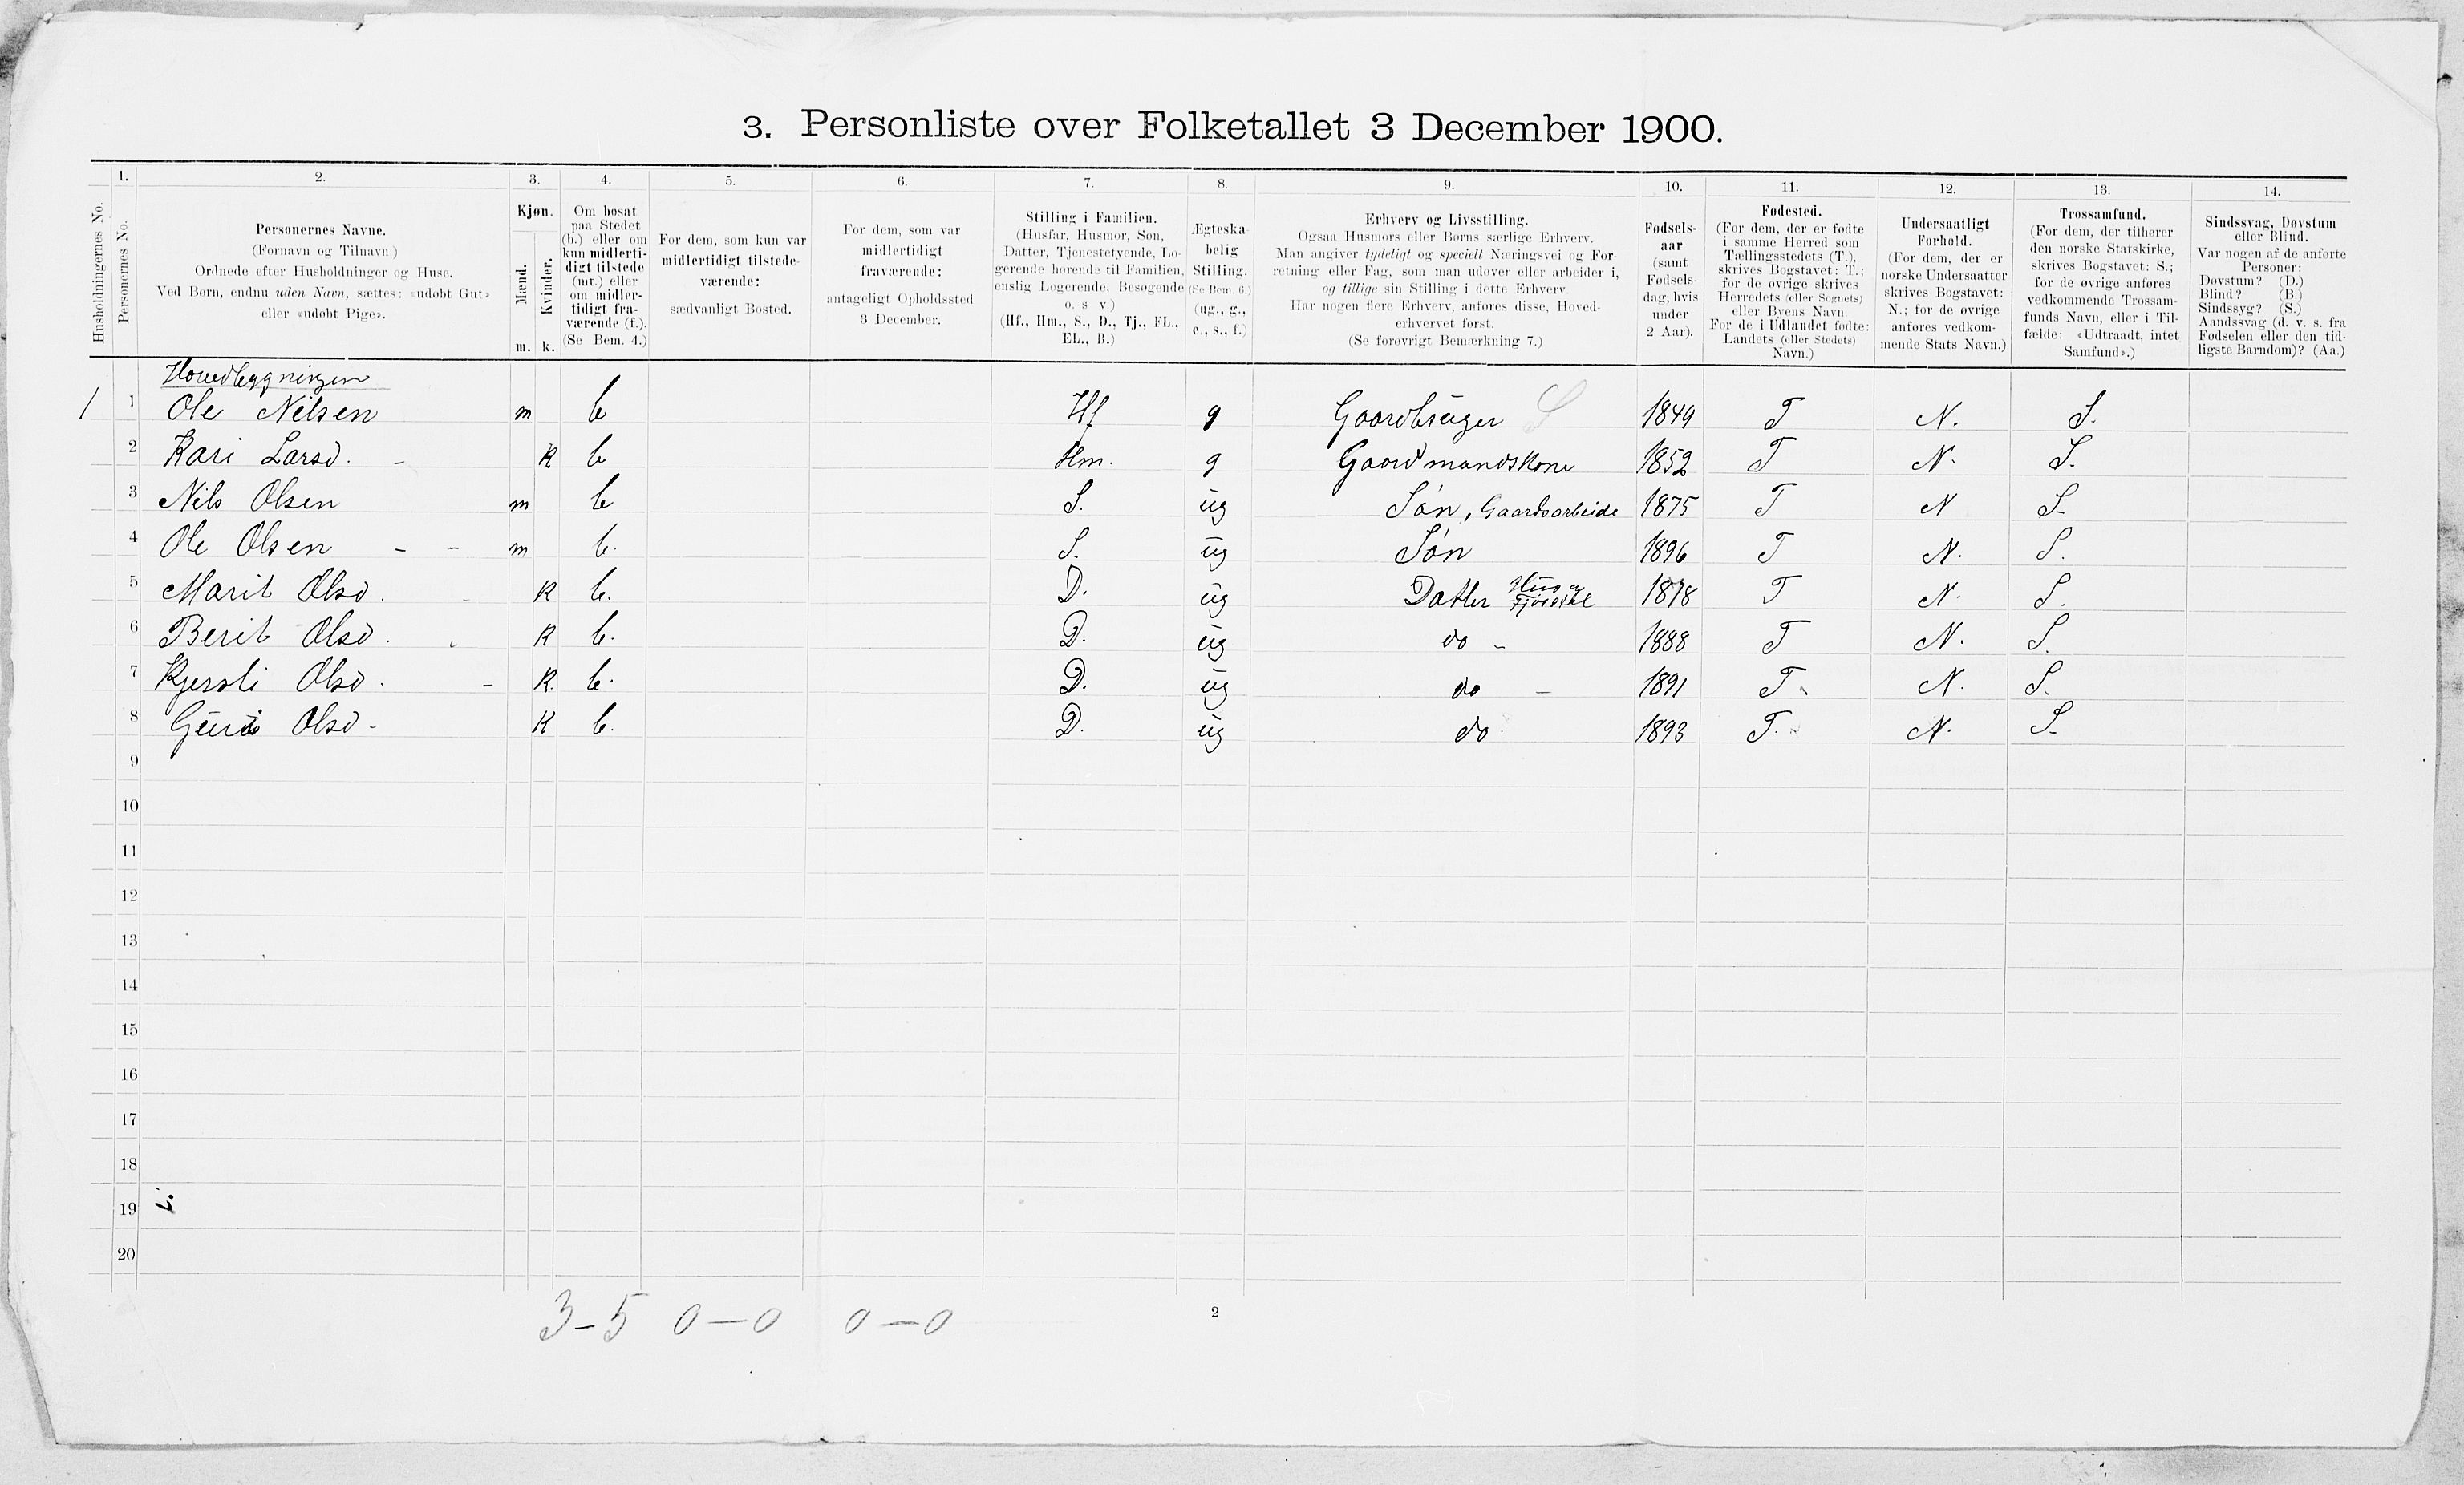 3. Personliste over Folketallet 3 December 1900.
Husholdningernes No.
1. Personernes No.
2.
Personernes Navne.
(Fornavn og Tilnavn)
Ordnede efter Husholdninger og Huse.
Ved Børn, endnu uden Navn, sættes: «udøbt Gut»
eller «udøbt Pige».
3.
Kjøn.
Mænd.
Kvinder.
m. k.
4.
Om bosat
paa Stedet
(b.) eller om
kun midlerti-
digt tilstede
(mt.) eller
om midler-
tidigt fra-
værende (f.).
(Se Bem. 4.)
5.
For dem, som kun var
midlertidigt tilstede-
værende:
sædvanligt Bosted.
6.
For dem, som var
midlertidigt
fraværende:
antageligt Opholdssted
3 December.
7.
Stilling i Familien.
(Husfar, Husmor, Søn,
Datter, Tjenestetyende, Lo-
gerende hørende til Familien,
enslig Logerende, Besøgende
o. s. v.)
(Hf., Hm., S., D., Tj., FL.,
EL., B.)
8.
Ægteska-
belig
Stilling.
(Se Bem. 6.)
(ug., g.,
e., s., f.)
9.
Erhverv og Livsstilling.
Ogsaa Husmors eller Børns særlige Erhverv.
Man angiver tydeligt og specielt Næringsvei og For-
retning eller Fag, som man udøver eller arbeider i,
og tillige sin Stilling i dette Erhverv.
Har nogen flere Erhverv, anføres disse, Hoved-
erhvervet først.
(Se forøvrigt Bemærkning 7.)
10.
Fødsels-
aar
(samt
Fødsels-
dag, hvis
under
2 Aar).
11.
Fødested.
(For dem, der er fødte
i samme Herred som
Tællingsstedets (T.),
skrives Bogstavet: T.;
for de øvrige skrives
Herredets (eller Sognets)
eller Byens Navn.
For de i Udlandet fødte:
Landets (eller Stedets)
Navn.)
12.
Undersaatligt
Forhold.
(For dem, der er
norske Undersaatter
skrives Bogstavet:
N.; for de øvrige
anføres vedkom-
mende Stats Navn.)
13.
Trossamfund.
(For dem, der tilhører
den norske Statskirke,
skrives Bogstavet: S.;
for de øvrige anføres
vedkommende Trossam-
funds Navn, eller i Til-
fælde: «Udtraadt, intet
Samfund».)
14.
Sindssvag, Døvstum
eller Blind.
Var nogen af de anførte
Personer:
Døvstum? (D.)
Blind? (B.)
Sindssyg? (S.)
Aandssvag (d. v. s. fra
Fødselen eller den tid-
ligste Barndom)? (Aa.)
Hovedbygningen
1 1 Ole Nilsen m b Hf g Gaardbruger S 1849 T N. S.
2 Kari Larsd. - K b Hm. g Gaardmandskone 1852 T N. S.
3 Nils Olsen m b S. ug Søn, Gaardsarbeide 1875 T N S.
4 Ole Olsen - - m b. S. ug Søn 1896 T N. S.
5 Marit Olsd. K b. D. ug Datter Hus og Fjøsstel 1878 T N. S.
6 Berit Olsd. K b. D. ug do - 1888 T N. S.
7 Kjersti Olsd. - K. b. D. ug do - 1891 T. N. S.
8 Guri Olsd - K b. D. ug do 1893 T. N. S.
9
10
11
12
13
14
15
16
17
18
19
20
3-5 0-0 0-0
2